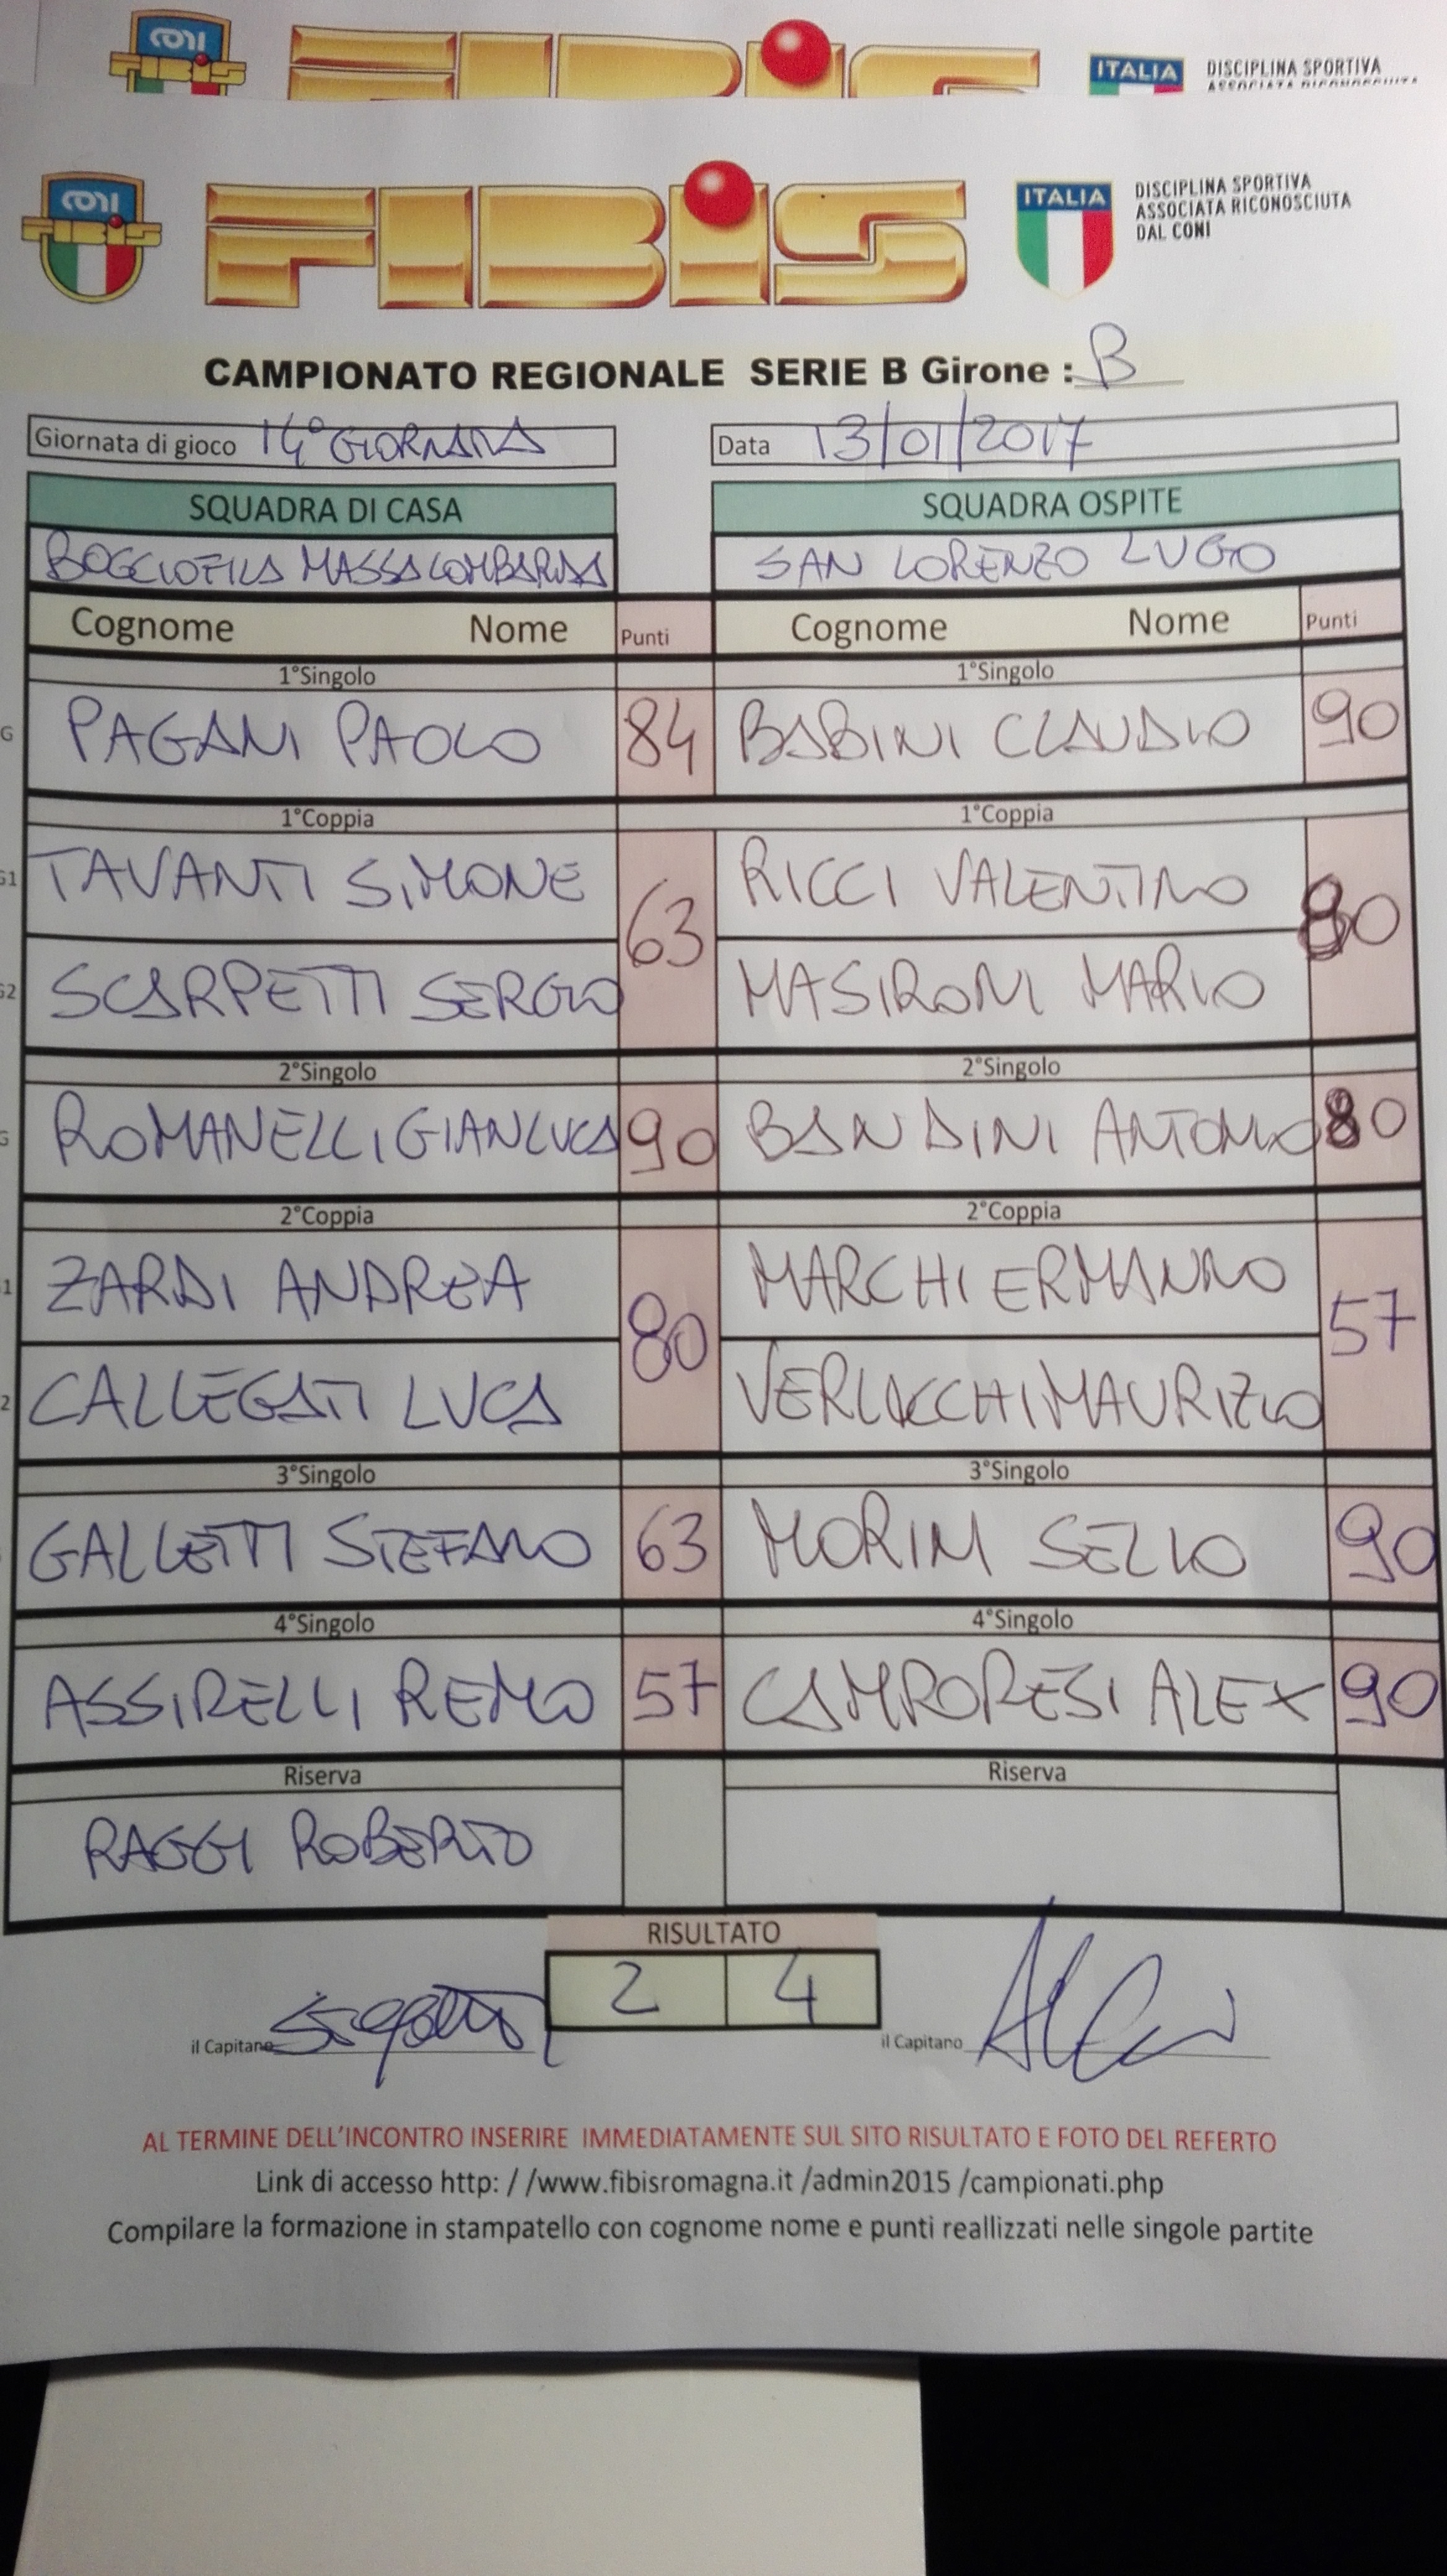 CONI
FIBIS
FIBIS
ITALIA
DISCIPLINA SPORTIVA
ASSOCIATA RICONOSCIUTA
CONI
FIBIS
FIBIS
ITALIA
DISCIPLINA SPORTIVA
ASSOCIATA RICONOSCIUTA
DAL CONI
CAMPIONATO REGIONALE SERIE B Girone : B
Giornata di gioco 14° GIORNATA Data 13/01/2017
SQUADRA DI CASA SQUADRA OSPITE
BOCCIOFILA MASSALOMBARDA SAN LORENZO LUGO
Cognome Nome Punti Cognome Nome Punti
1°Singolo 1°Singolo
G PAGANI PAOLO 84 BABINI CLAUDIO 90
1°Coppia 1°Coppia
G1 TAVANTI SIMONE 63 RICCI VALENTINO 80
G2 SCARPETTI SERGIO MASIRONI MARIO
2°Singolo 2°Singolo
G ROMANELLI GIANLUCA 90 BANDINI ANTONIO 80
2°Coppia 2°Coppia
1 ZARDI ANDREA 80 MARCHI ERMANNO 57
2 CALLEGATI LUCA VERLICCHI MAURIZIO
3°Singolo 3°Singolo
GALLETTI STEFANO 63 MORINI SELLO 90
4°Singolo 4°Singolo
ASSIRELLI REMO 57 CAMPORESI ALEX 90
Riserva Riserva
RAGGI ROBERTO
RISULTATO
2 4
il Capitano il Capitano
AL TERMINE DELL'INCONTRO INSERIRE IMMEDIATAMENTE SUL SITO RISULTATO E FOTO DEL REFERTO
Link di accesso http: / /www.fibisromagna.it /admin2015 /campionati.php
Compilare la formazione in stampatello con cognome nome e punti reallizzati nelle singole partite